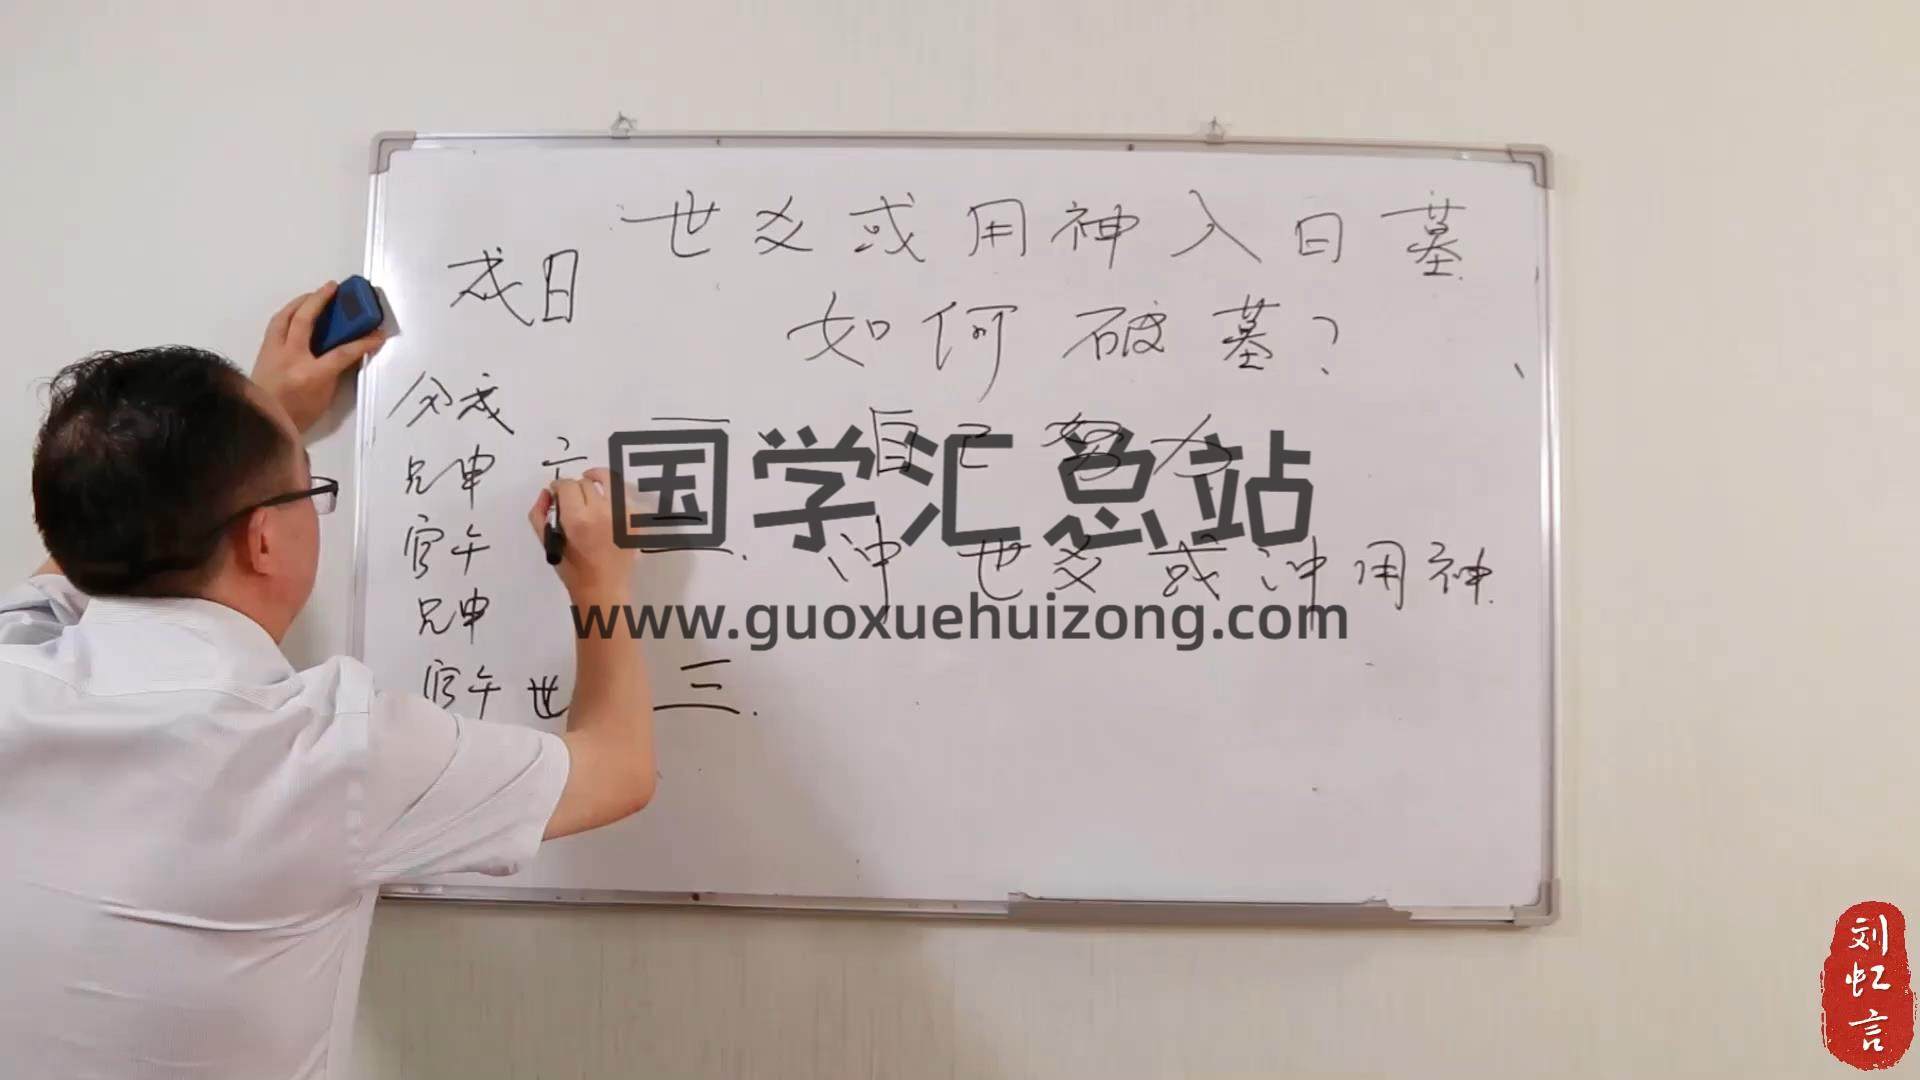 世爻或用神入日墓
戌日
如何破墓?
父戌
一、自己努力
兄申
官午
二、冲世爻或冲用神
兄申
官午 世
三、
国学汇总站
www.guoxuehuizong.com
刘虹言